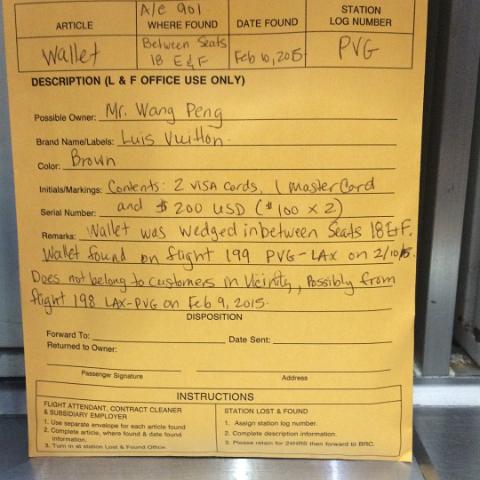 ARTICLE A/C 901 WHERE FOUND DATE FOUND STATION LOG NUMBER
Wallet Between Seats 18 E & F Feb 10, 2015 PVG
DESCRIPTION (L & F OFFICE USE ONLY)
Possible Owner: Mr. Wang Peng
Brand Name/Labels: Luis Vuitton
Color: Brown
Initials/Markings: Contents: 2 VISA Cards, 1 MasterCard
Serial Number: and $200 USD ($100 x 2)
Remarks: Wallet was wedged inbetween Seats 18E&F.
Wallet found on flight 199 PVG-LAX on 2/10/15.
Does not belong to customers in Vicinity, Possibly from
flight 198 LAX-PVG on Feb 9, 2015.
DISPOSITION
Forward To: Date Sent:
Returned to Owner:
Passenger Signature Address
INSTRUCTIONS
FLIGHT ATTENDANT, CONTRACT CLEANER
& SUBSIDIARY EMPLOYER
1. Use separate envelope for each article found
2. Complete article, where found & date found
information.
3. Turn in at station Lost & Found Office
STATION LOST & FOUND
1. Assign station log number.
2. Complete description information.
3. Please retain for 24HRS then forward to BRC.